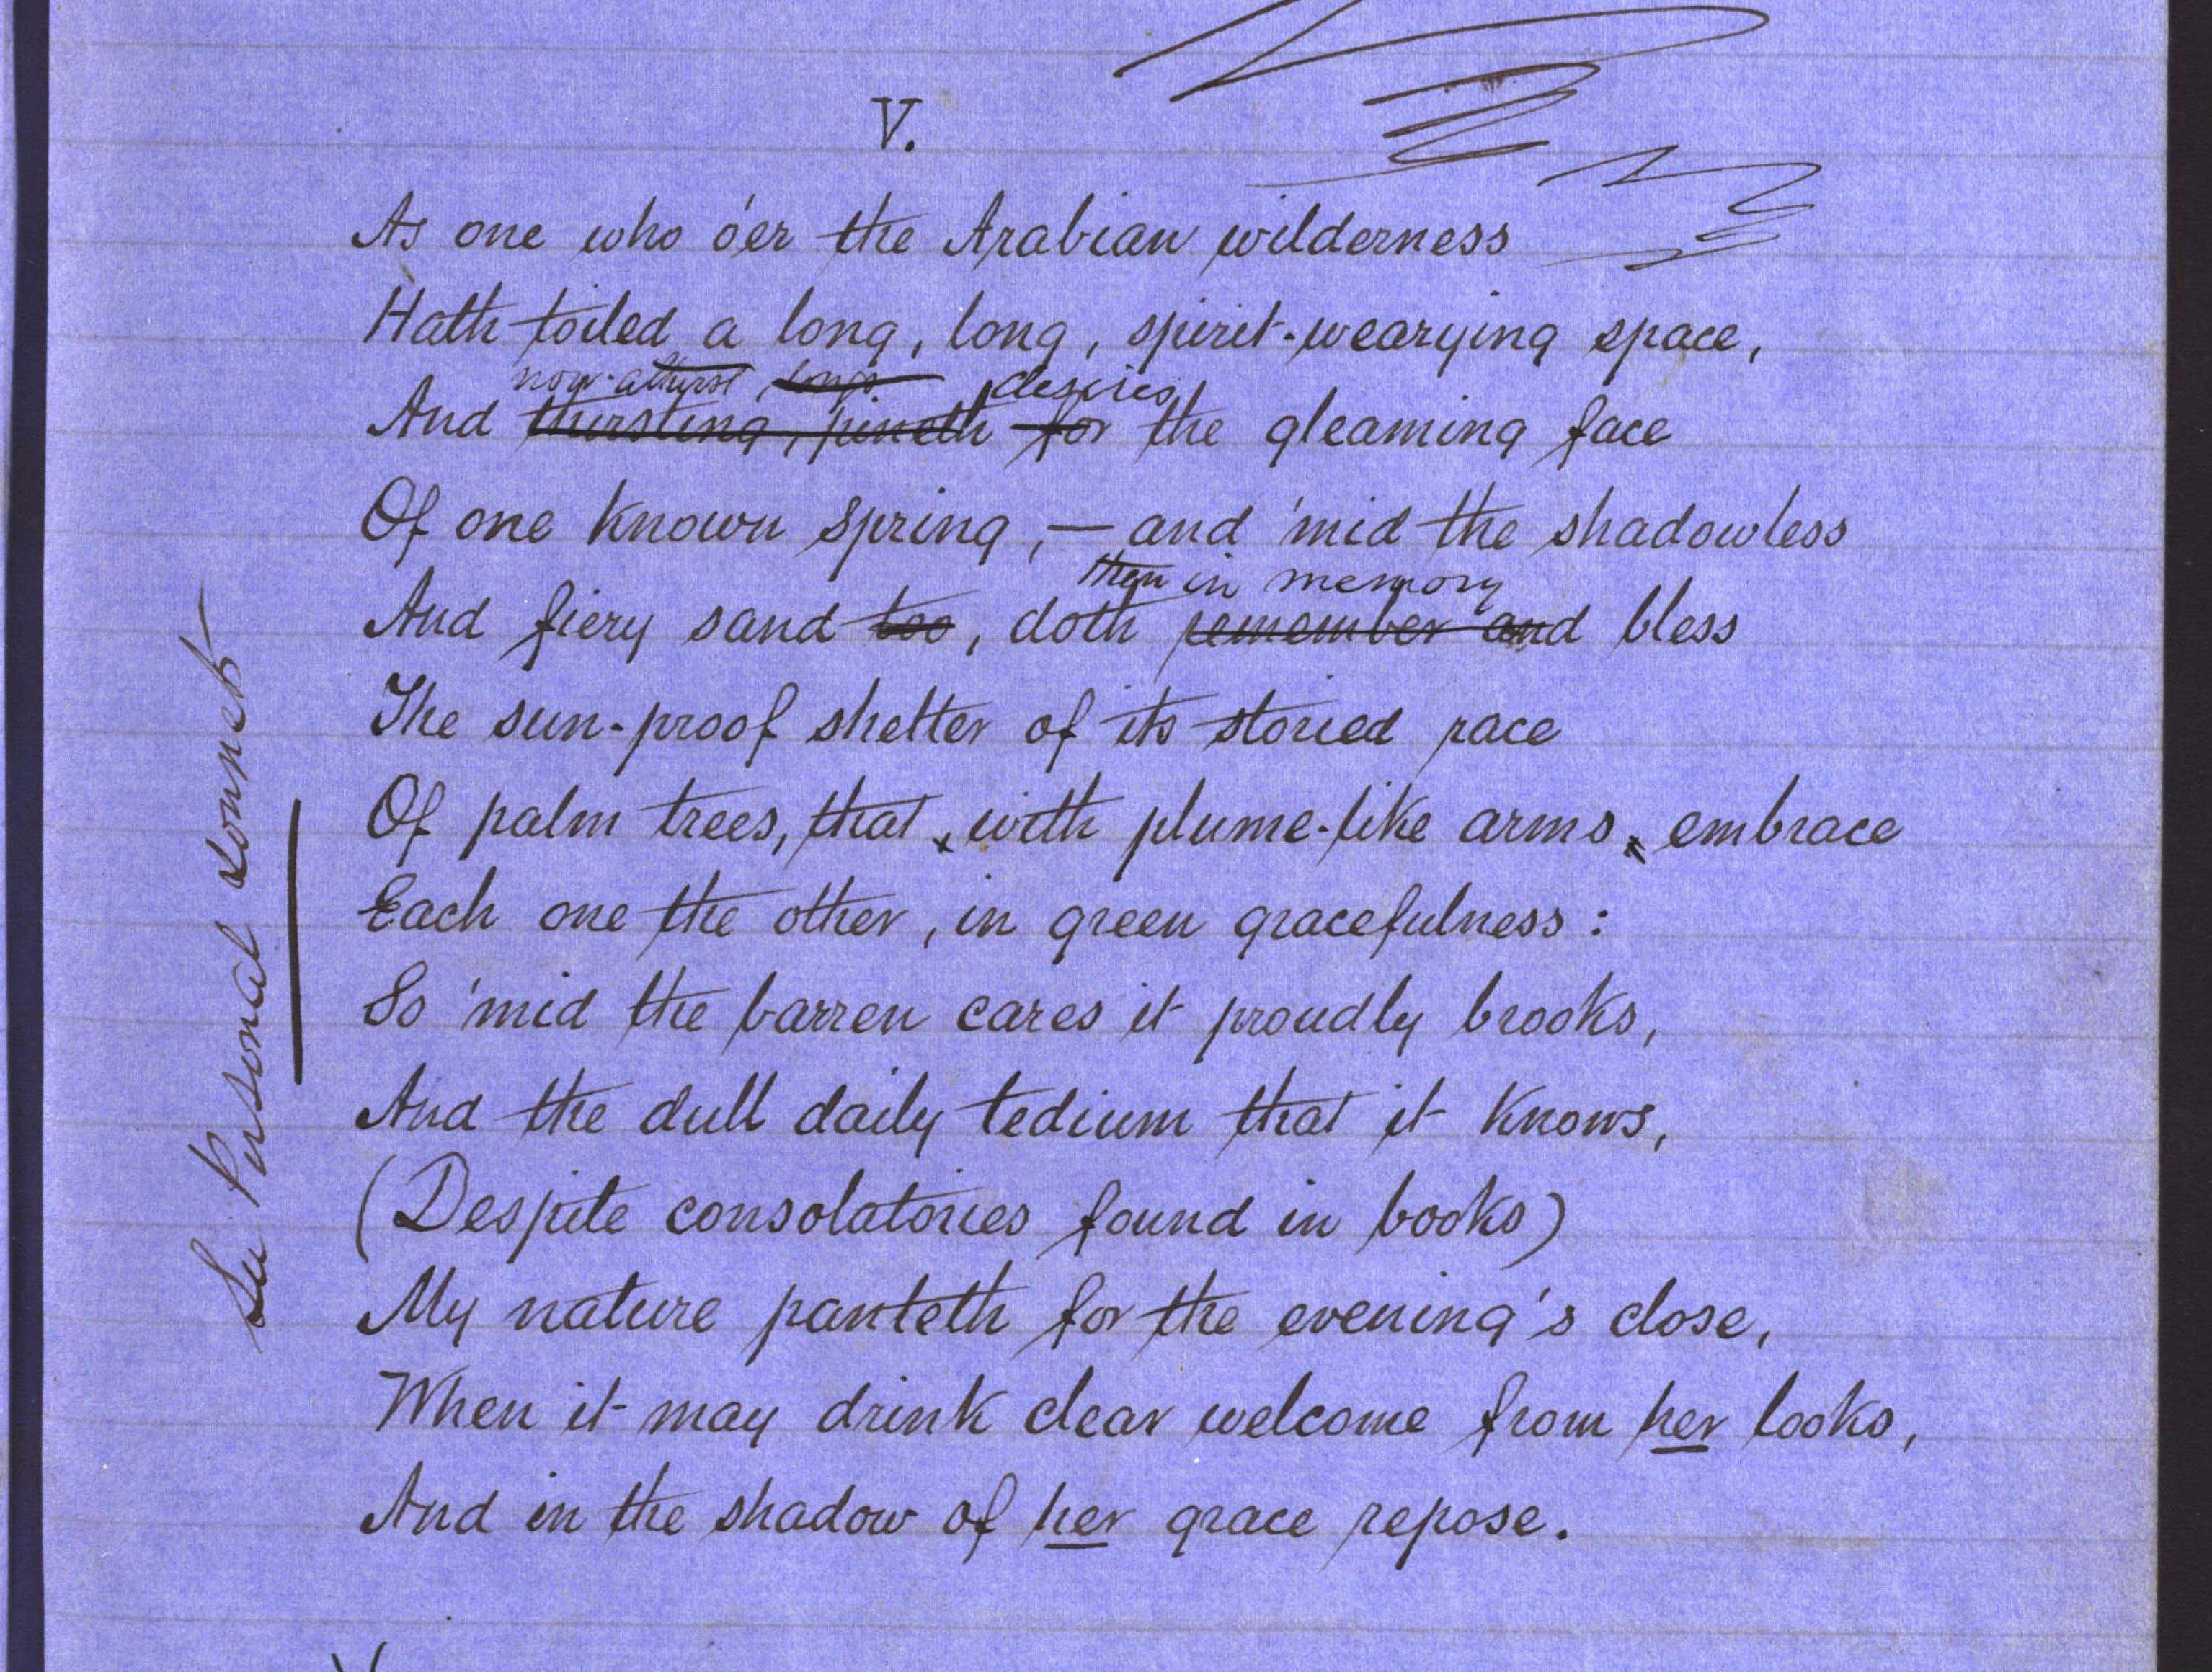 V.
As one who o'er the Arabian wilderness
Hath toiled a long, long, spirit-wearying space,
now athirst, longs desires
And thirsting, pineth for the gleaming face
Of one known spring, — and 'mid the shadowless
then in memory
And fiery sand too, doth remember and bless
The sun-proof shelter of its storied race
Of palm trees, that, with plume-like arms, embrace
Each one the other, in green gracefulness:
So 'mid the barren cares it proudly brooks,
And the dull daily tedium that it knows,
(Despite consolatories found in books)
My nature panteth for the evening's close,
When it may drink clear welcome from her looks,
And in the shadow of her grace repose.
See Personal sonnets